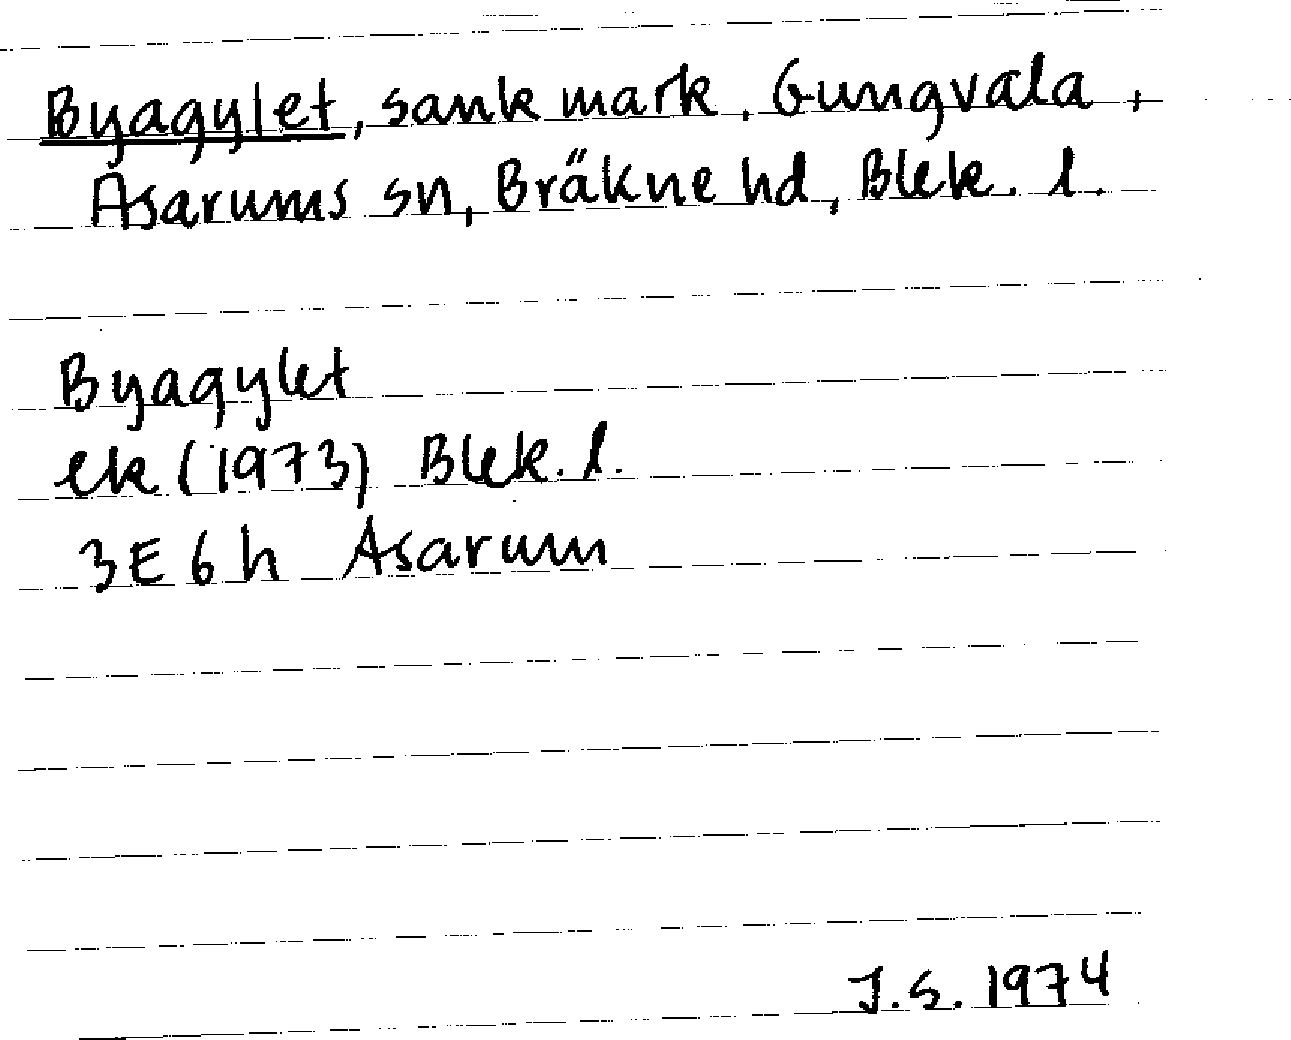 Byagylet, sank mark. Gungvala,
Asarums sn, Bräkne hd, Blek. l.
Byagylet
ek (1973) Blek. l.
3E6h Asarum
J.S. 1974